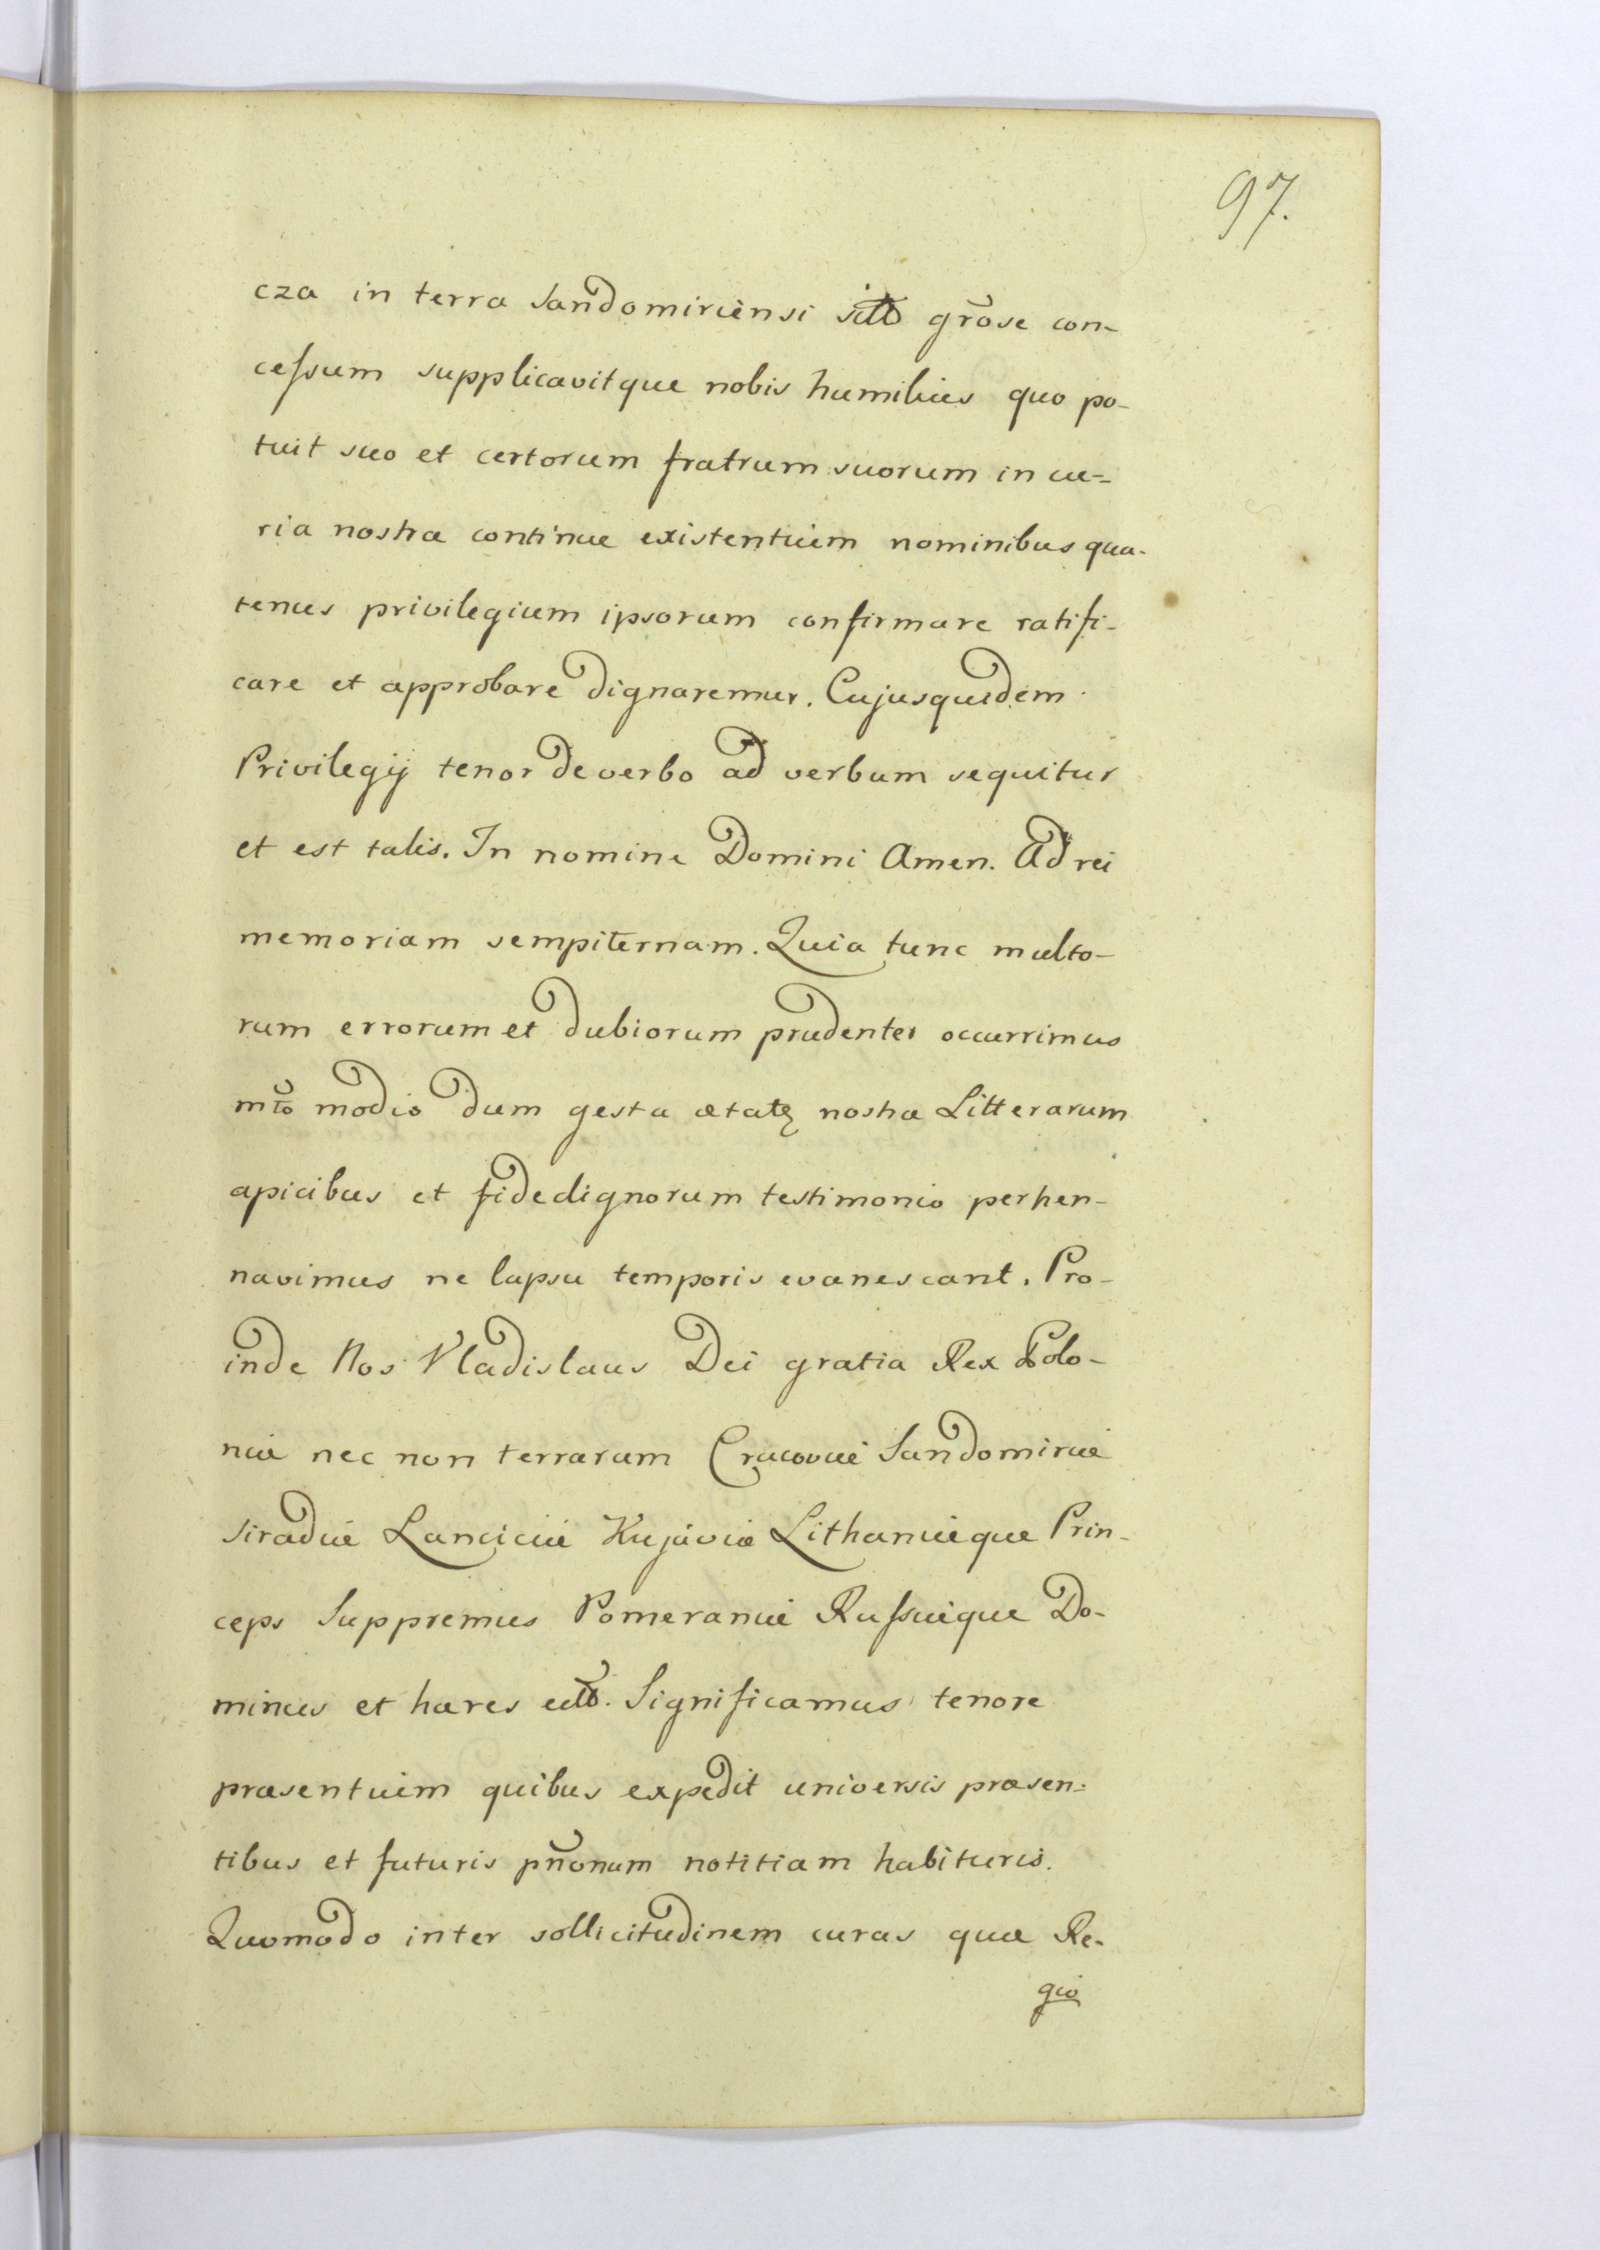 97.
cza in terra Sandomiriensi sitto gr̃ose con-
cessum supplicavitque nobis humilius quo po-
tuit suo et certorum fratrum suorum in cu-
ria nostra continue existentium nominibus qua-
tenus privilegium ipsorum confirmare ratifi-
care et approbare dignaremur. Cujusquidem
Privilegij tenor de verbo ad verbum sequitur
et est talis. In nomine Domini Amen. Ad rei
memoriam sempiternam. Quia tunc multo-
rum errorum et dubiorum prudenter occurrimus
mt̃o modio dum gesta ætatę nostræ Litterarum
apicibus et fide dignorum testimonio perhen-
navimus ne lapsu temporis evanescant. Pro-
inde Nos Vladislaus Dei gratia Rex Polo-
niæ nec non terrarum Cracoviæ Sandomiriæ
Siradiæ Lanciciæ Kujaviæ Lithaniæque Prin-
ceps Suppremus Pomeraniæ Russiæque Do-
minus et hæres ectt̃. Significamus tenore
præsentium quibus expedit universis præsen-
tibus et futuris pñonum notitiam habituris.
Quomodo inter sollicitudinem curas quæ Re-
gio